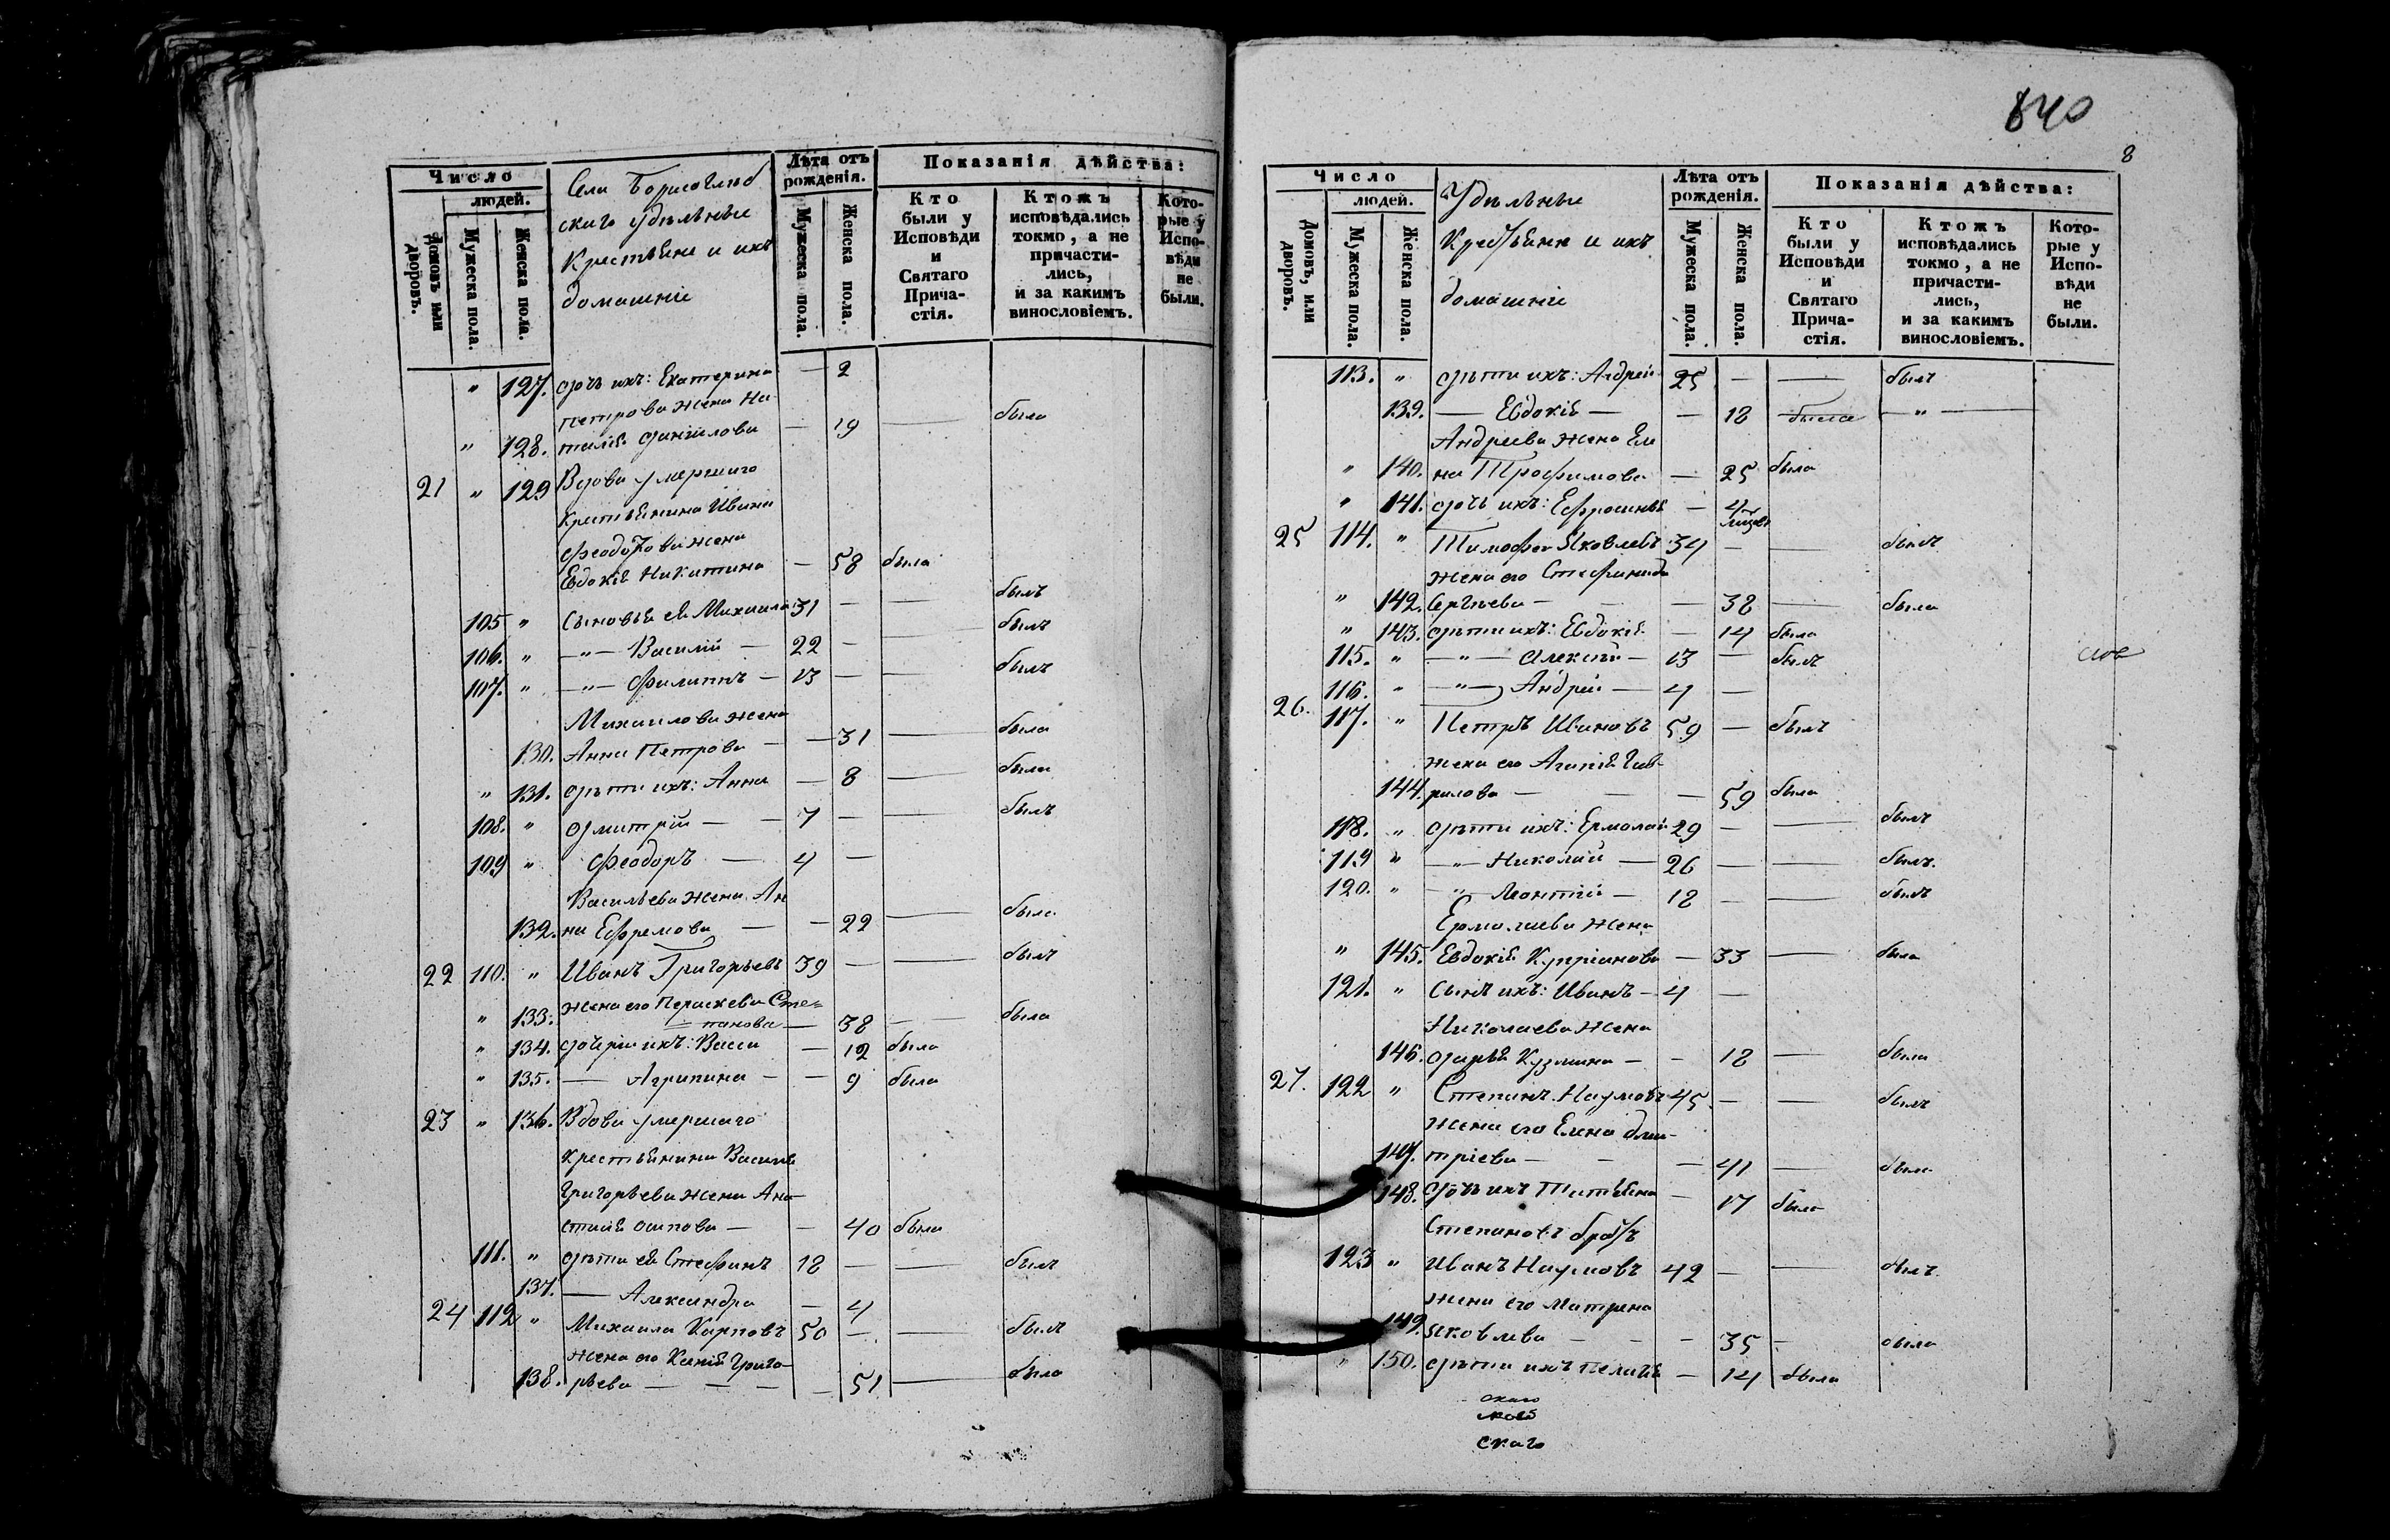 Число
людей.
Домовъ или дворовъ.
Мужеска пола.
Женска пола.
Села Борисоглѣб
скаго удѣльные
Крестьяне и ихъ
домашніе
Лѣта отъ рожденія.
Мужеска пола.
Женска пола.
Показанія дѣйства:
Кто были у Исповѣди и Святаго Причастія.
Ктожъ исповѣдались токмо, а не причастились, и за какимъ винословіемъ.
Которые у Исповѣди не были.
" 127. дочь ихъ: Екатерина — 2
Петрова жена На
" 128. талія Данилова — 19 — была
21 " 129 Вдова умершаго
крестьянина Ивана
Феодорова жена
Евдокія Никитина — 58 была
105 " Сыновья ея Михаила 31 — — былъ
106. " —"— Василій — 22 — былъ
107. " —"— Филиппъ — 13 — — былъ
Михаилова жена
130. Анна Петрова — — 31 — была
" 131. дѣти ихъ: Анна — 8 — была
108. " Дмитрій — — 7 — — былъ
109 " Феодоръ — 4 —
Васильева жена Ан
132. на Ефремова — — 22 — была
22 110. " Иванъ Григорьевъ 39 — — былъ
жена его Параскева Сте=
" 133. панова — 38 — была
" 134. дочери ихъ: Васса — 12 была
" 135. — Агрипина — — 9 была
23 " 136. Вдова умершаго
крестьянина Василья
Григорьева жена Ана
стасія Осипова — — 40 была
111. " дѣти ея Стефанъ 18 — — былъ
137. — Александра — 4
24 112 " Михаила Карповъ 50 — — былъ
жена его Ксенія Григо-
138. рьева — — — — 51 — была
840
8
Число
людей.
Домовъ, или дворовъ.
Мужеска пола.
Женска пола.
Удѣльные
Крестьяне и ихъ
домашніе
Лѣта отъ рожденія.
Мужеска пола.
Женска пола.
Показанія дѣйства:
Кто были у Исповѣди и Святаго Причастія.
Ктожъ исповѣдались токмо, а не причастились, и за какимъ винословіемъ.
Которые у Исповѣди не были.
113. " дѣти ихъ: Андрей 25 — — былъ
139. — Евдокія — — 18 была — " —
Андреева жена Еле
" 140. на Трофимова — 25 была
" 141. дочь ихъ: Ефросинья — 4
25 114. " Тимофей Яковлевъ 34 — — былъ
жена его Стефанида
" 142. Сергѣева — — 38 — была
" 143. дѣти ихъ: Евдокія — 14 была
115. " —"— Алексѣй — 13 — былъ
116. " —"— Андрей — 4 —
26. 117. " Петръ Ивановъ 59 — былъ
жена его Агапія Гав-
144. рилова — — — 59 была
118. " дѣти ихъ: Ермолай 29 — — былъ
119 " —"— Николай — 26 — — былъ.
120. " —"— Леонтій — 18 — — былъ
Ермолаева жена
" 145. Евдокія Купріанова — 33 — была
121. " сынъ ихъ: Иванъ — 4 —
Николаева жена
146. Дарья Кузмина — — 18 — была
27. 122 " Степанъ Наумовъ 45 — — былъ
жена его Елена Дми-
147. тріева — — — 41 — была
148. дочь ихъ Татьяна — 17 была
Степановъ братъ
123 " Иванъ Наумовъ 42 — — былъ.
жена его Матрена
149. Яковлева — — — 35 — была
" 150. дѣти ихъ Пелагея — 14 была
скаго
скаго